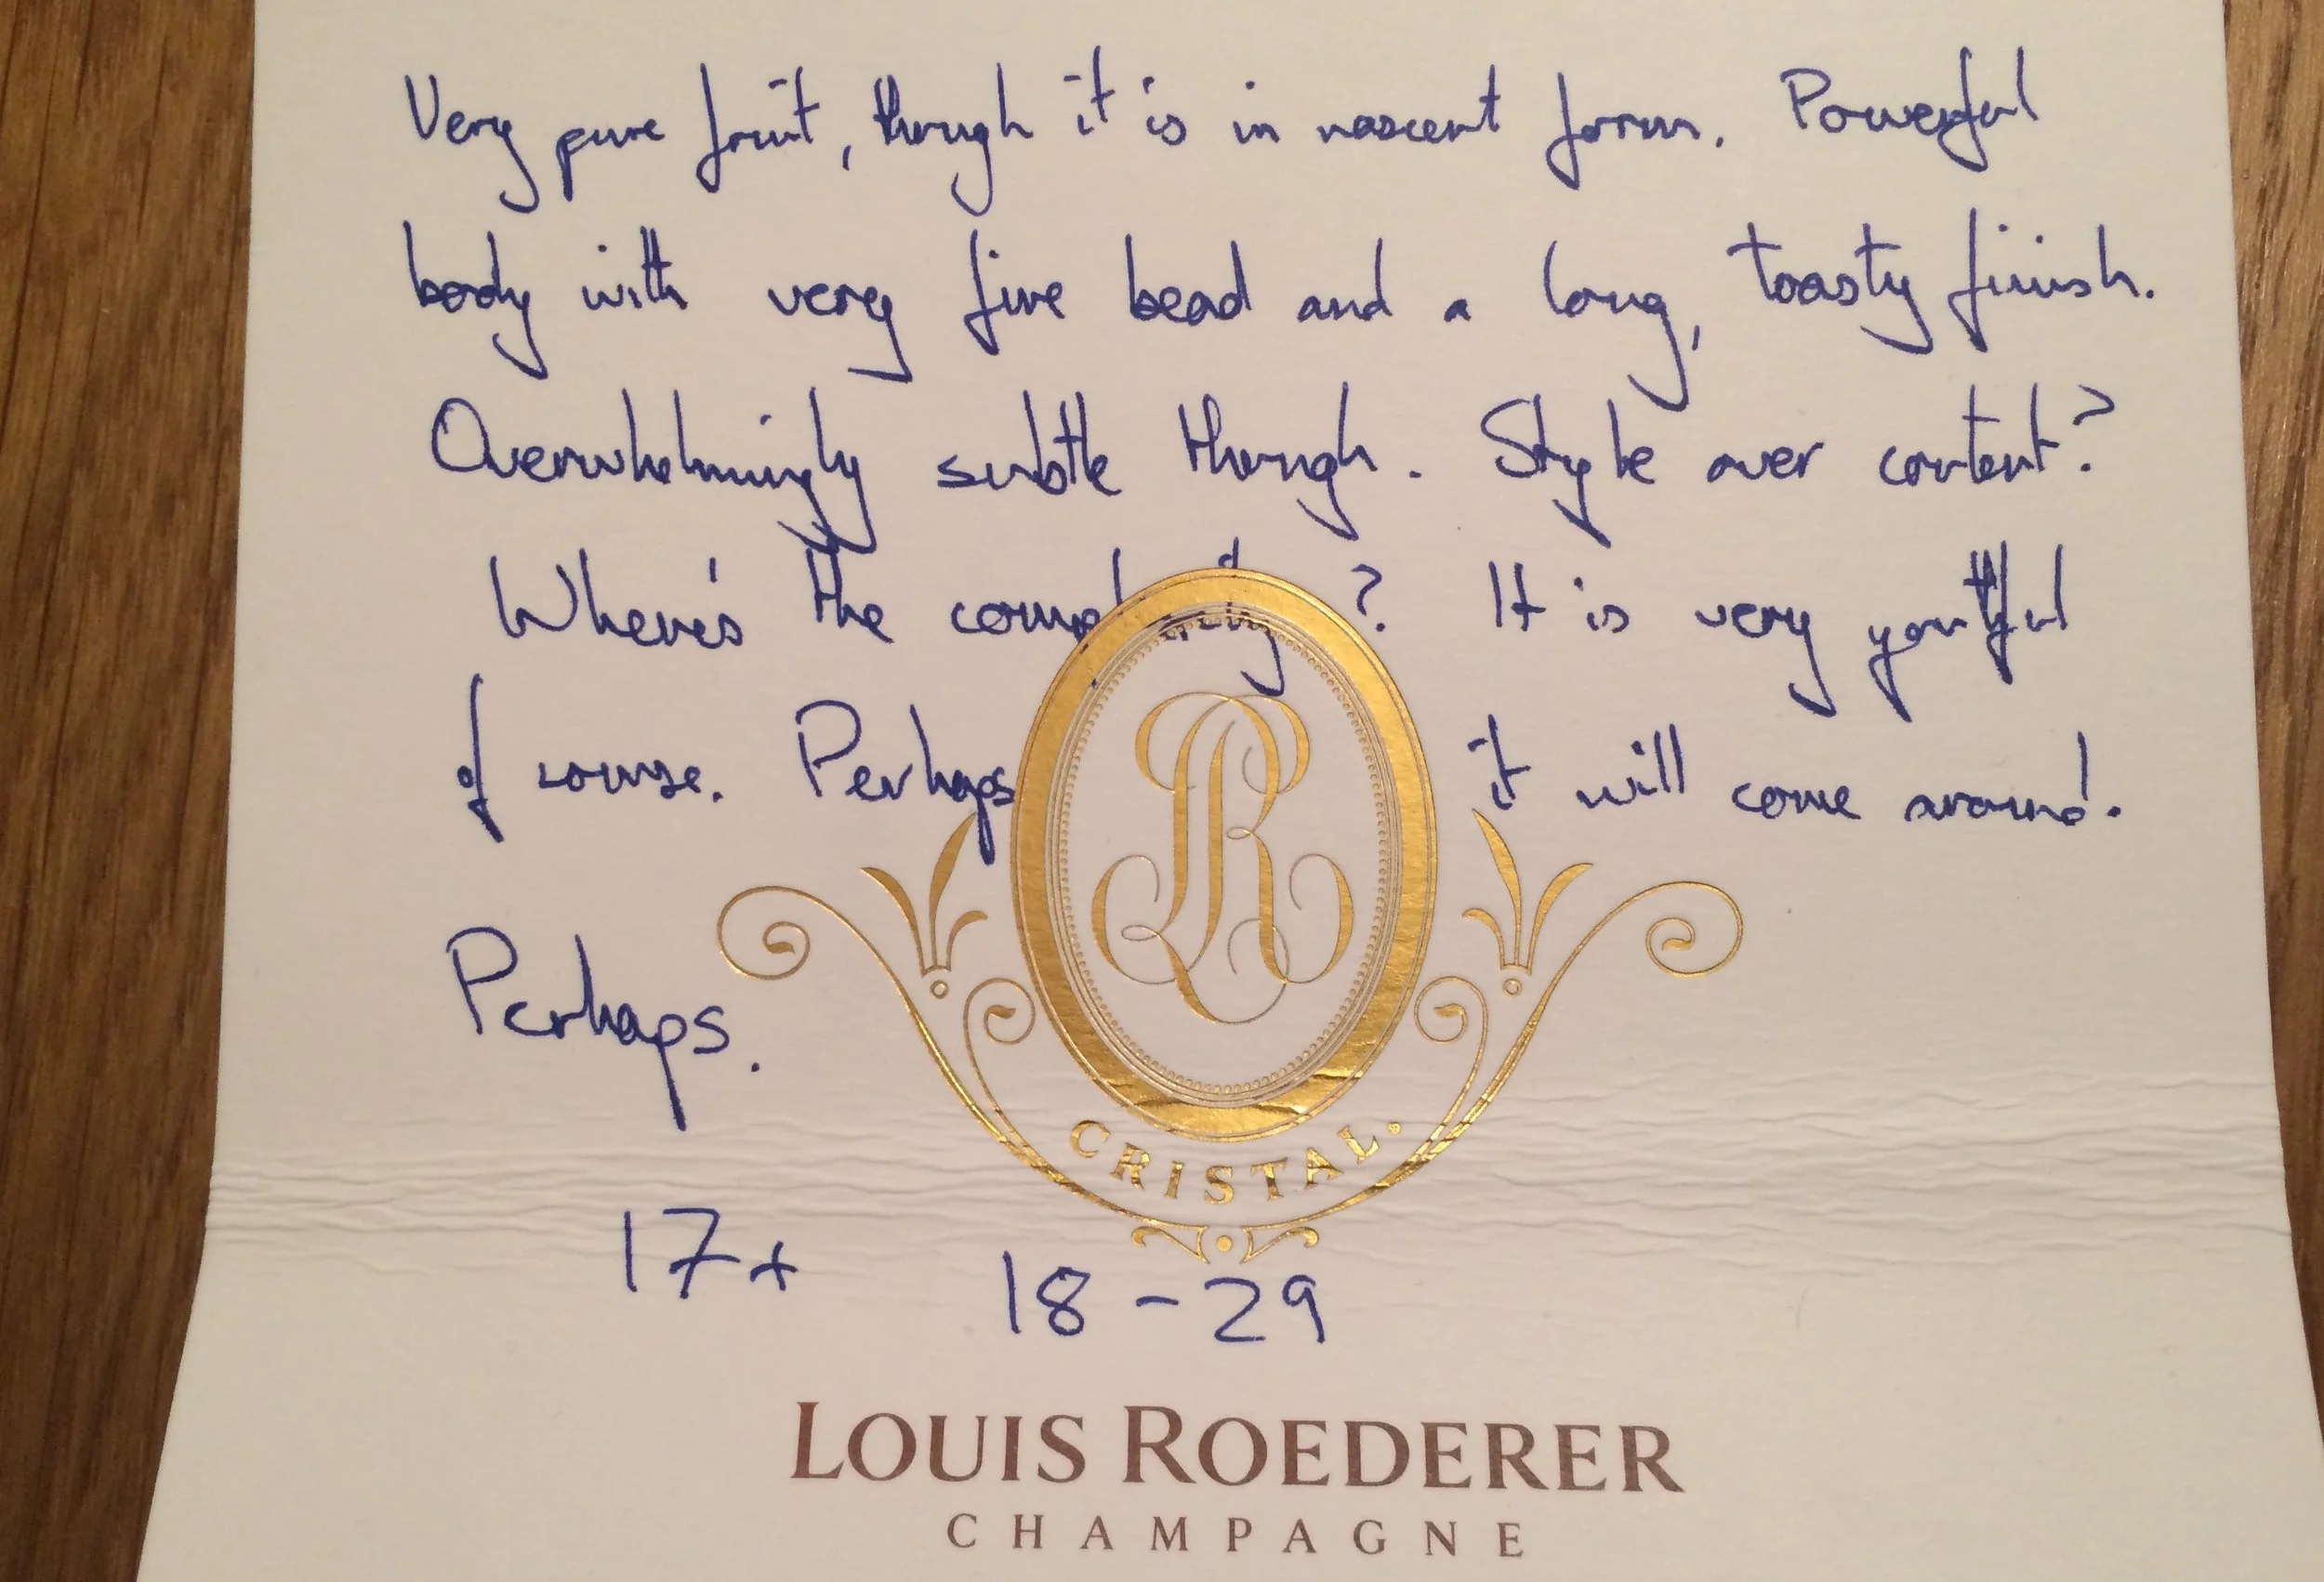 Very pure fruit, though it is in nascent form. Powerful
body with very fine bead and a long, toasty finish.
Overwhelmingly subtle though. Style over content?
Where's the complexity? It is very youthful
of course. Perhaps it will come around.
Perhaps.
17+ 18-29
CRISTAL.
LOUIS ROEDERER
CHAMPAGNE